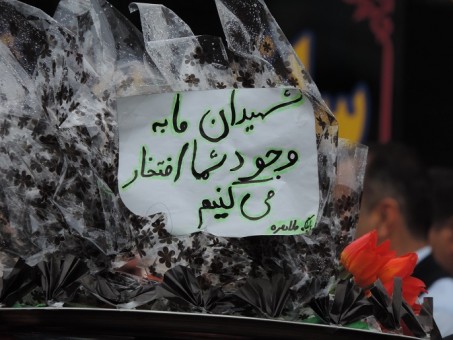 شهیدان ما به
وجود شما افتخار
می کنیم